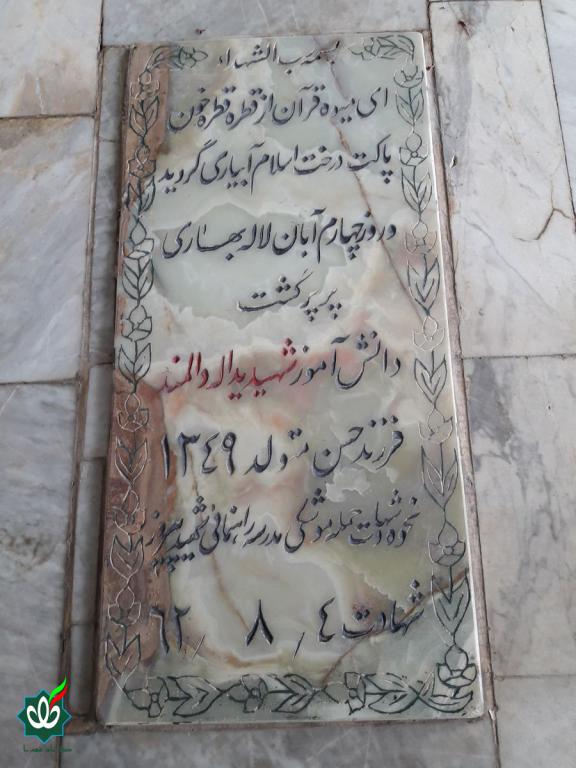 بسم رب الشهداء
ای میوه قرآن از قطره قطره خون
پاکت درخت اسلام آبیاری گردید
در روز چهارم آبان لاله بهاری
پرپر گشت
دانش آموز شهید یداله دالمند
فرزند حسن متولد ۱۳۴۹
نحوه شهادت حمله موشکی مدرسه راهنمائی شهید پیروز
شهادت ۴ / ۸ / ۶۲